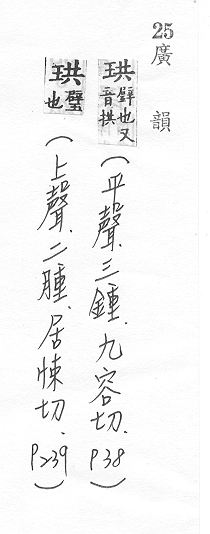 25廣韻
珙璧也又音拱(平聲.三鍾.九容切.P38)
珙璧也(上聲.二腫.居悚切.P239)